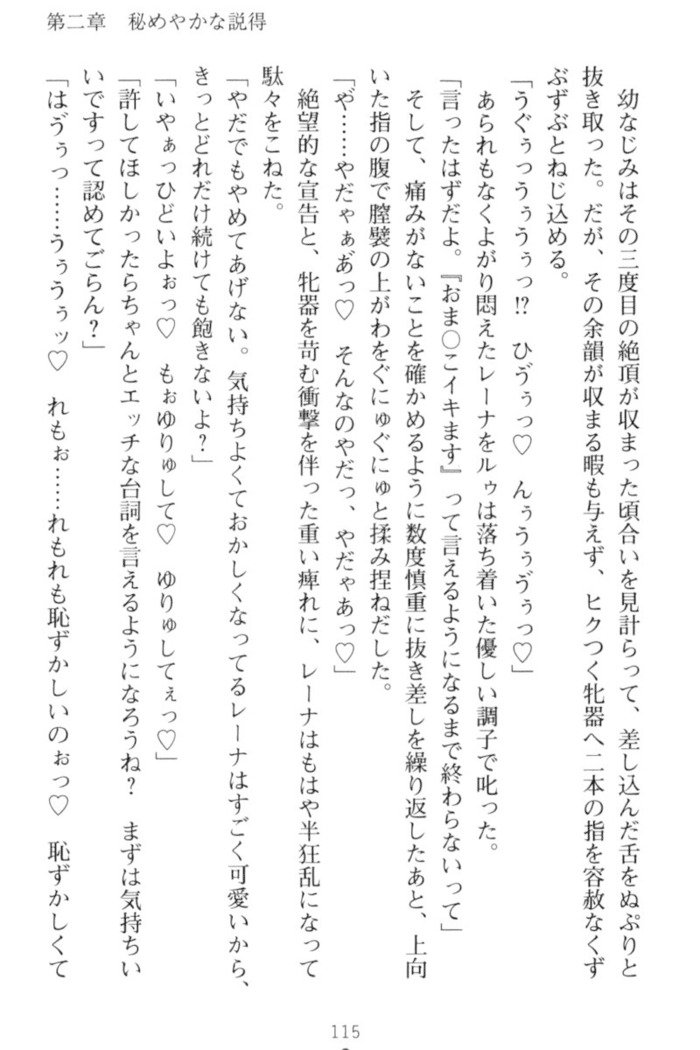 第二章　秘めやかな説得
　幼なじみはその三度目の絶頂が収まった頃合いを見計らって、差し込んだ舌をぬぷりと
抜き取った。だが、その余韻が収まる暇も与えず、ヒクつく牝器へ二本の指を容赦なくず
ぶずぶとねじ込める。
「うぐぅっうぅうぅっ!?　ひゔぅっ♡　んぅうぅゔぅっ♡」
　あられもなくよがり悶えたレーナをルゥは落ち着いた優しい調子で叱った。
「言ったはずだよ。『おま○こイキます』って言えるようになるまで終わらないって」
　そして、痛みがないことを確かめるように数度慎重に抜き差しを繰り返したあと、上向
いた指の腹で膣襞の上がわをぐにゅぐにゅと揉み捏ねだした。
「や゛……やだゃぁあ゛っ♡　そんなのやだっ、やだゃあっ♡」
　絶望的な宣告と、牝器を苛む衝撃を伴った重い痺れに、レーナはもはや半狂乱になって
駄々をこねた。
「やだでもやめてあげない。気持ちよくておかしくなってるレーナはすごく可愛いから、
きっとどれだけ続けても飽きないよ？」
「いやぁっひどいよぉっ♡　もぉゆりゅして♡　ゆりゅしてぇっ♡」
「許してほしかったらちゃんとエッチな台詞を言えるようになろうね？　まずは気持ちい
いですって認めてごらん？」
「はゔぅっ……うぅうぅッ♡　れもぉ……れもれも恥ずかしいのぉっ♡　恥ずかしくて
115